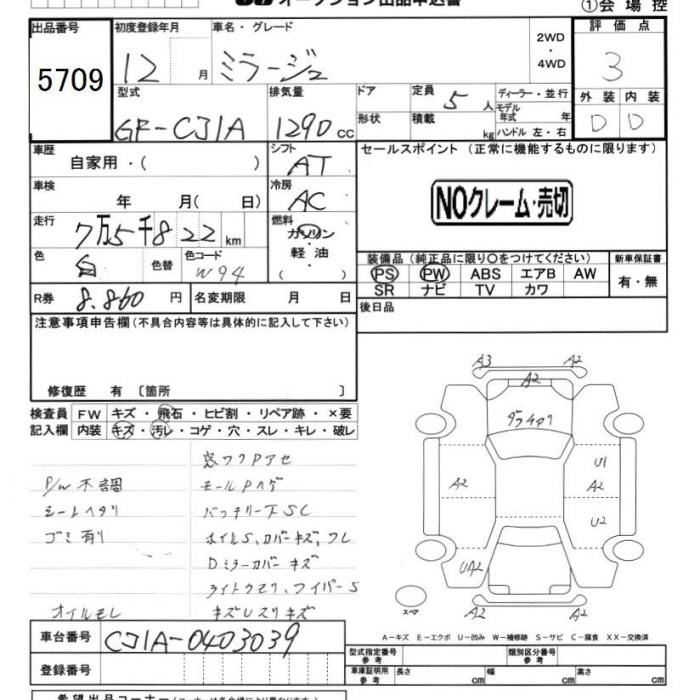 オークション出品申込書
①会場控
出品番号
5709
初度登録年月
12 月
車名・グレード
ミラージュ
2WD
・
4WD
評価点
3
型式
GF-CJ1A
排気量
1290 CC
ドア
形状
定員 5 人
積載 kg
ディーラー・並行
モデル年式 年
ハンドル 左・右
外装 内装
D D
車歴
自家用・( )
シフト
AT
セールスポイント (正常に機能するものに限ります)
NOクレーム・売切
車検
年 月( 日)
冷房
AC
走行
7万5千822km
燃料
ガソリン
・
軽油
( )
色
白
色替
色コード
W94
装備品 (純正品に限り○をつけてください)
PS PW ABS エアB AW
SR ナビ TV カワ
新車保証書
有・無
R券 8.860 円
名変期限 月 日
後日品
注意事項申告欄 (不具合内容等は具体的に記入して下さい)
修復歴 有 〔箇所 〕
検査員
記入欄
FW キズ・飛石・ヒビ割・リペア跡・×要
内装 キズ・汚レ・コゲ・穴・スレ・キレ・破レ
P/W不調
シートヘタリ
ゴミ有り
オイルモレ
窓ワクPアセ
モールPハゲ
バッテリー下SC
ホイルS、カバーキズ、ワレ
Dミラーカバーキズ
ライトクモリ、ワイパーS
キズUスリキズ
A3 A2
A2
U1
A2 A2
U2
UA2
A2 A2
スペア
A－キズ E－エクボ U－凹み W－補修跡 S－サビ C－腐食 XX－交換済
車台番号 CJ1A-0403039
登録番号
型式指定番号
参考
類別区分番号
参考
車庫証明用
参考
長さ cm
幅 cm
高さ cm
希望出品コーナー